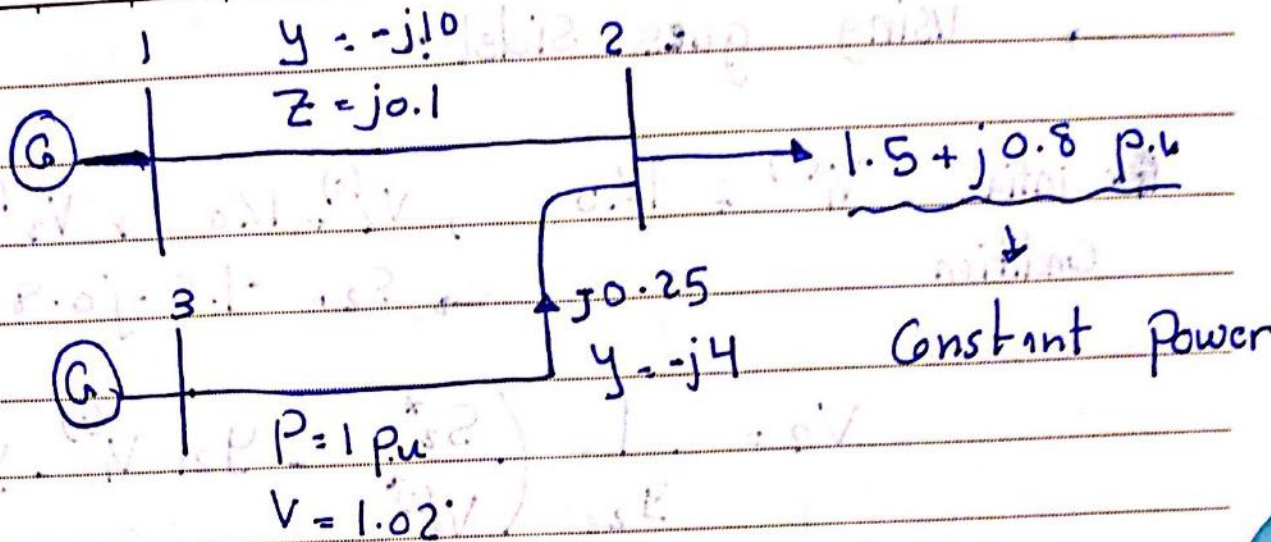 1 y = -j10 2
Z = j0.1
G
1.5 + j0.8 p.u
3
j0.25
G
y = -j4
Constant Power
P = 1 p.u
V = 1.02